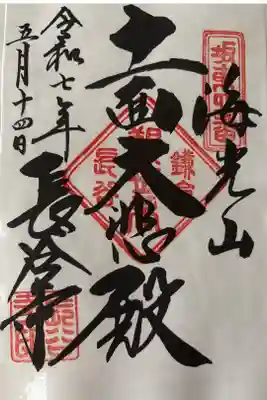 海光山
十一面大悲殿
令和七年
五月十四日
長谷寺
鎌倉
長谷